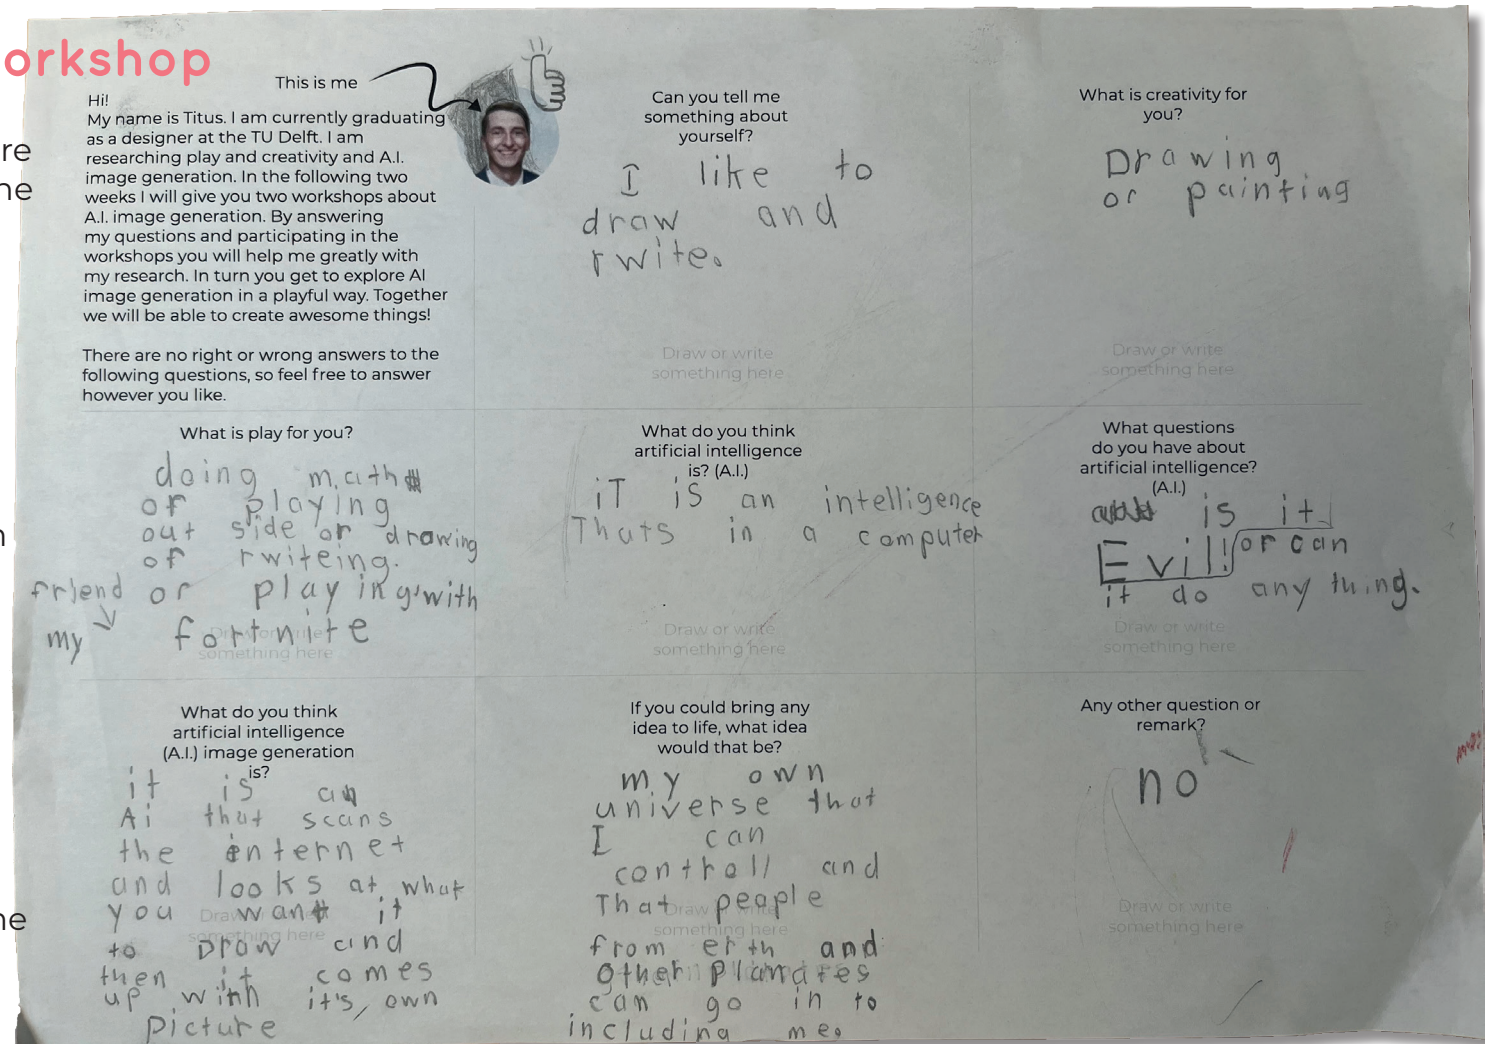 orkshop
re
ne
n
ne
This is me
Hi!
My name is Titus. I am currently graduating
as a designer at the TU Delft. I am
researching play and creativity and A.I.
image generation. In the following two
weeks I will give you two workshops about
A.I. image generation. By answering
my questions and participating in the
workshops you will help me greatly with
my research. In turn you get to explore AI
image generation in a playful way. Together
we will be able to create awesome things!
There are no right or wrong answers to the
following questions, so feel free to answer
however you like.
Can you tell me
something about
yourself?
I like to
draw and
rwite.
Draw or write
something here
What is creativity for
you?
Drawing
or painting
Draw or write
something here
What is play for you?
doing math
or playing
out side or drawing
of rwiteing.
friend or playing with
my fortnite
Draw or write
something here
What do you think
artificial intelligence
is? (A.I.)
iT is an intelligence
Thats in a computer
Draw or write
something here
What questions
do you have about
artificial intelligence?
(A.I.)
is it
Evil! or can
it do any thing.
Draw or write
something here
What do you think
artificial intelligence
(A.I.) image generation
is?
it is an
Ai that scans
the internet
and looks at what
you want it
to Draw and
then it comes
up with it's, own
Picture
Draw or write
something here
If you could bring any
idea to life, what idea
would that be?
my own
universe that
I can
controll and
That people
from erth and
other planates
can go in to
including me.
Draw or write
something here
Any other question or
remark?
no
Draw or write
something here